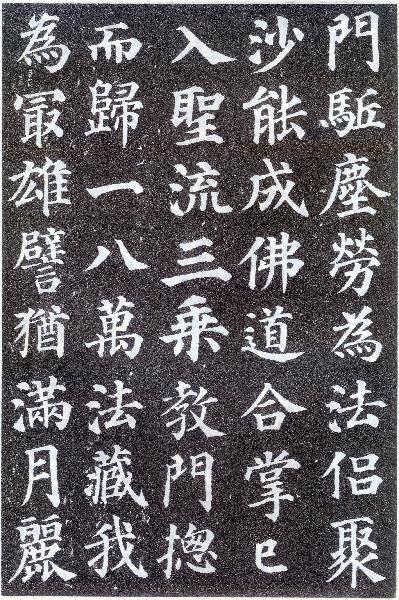 門駈塵勞為法侶聚
沙能成佛道合掌已
入聖流三乗教門揔
而歸一八萬法藏我
為冣雄譬猶滿月麗